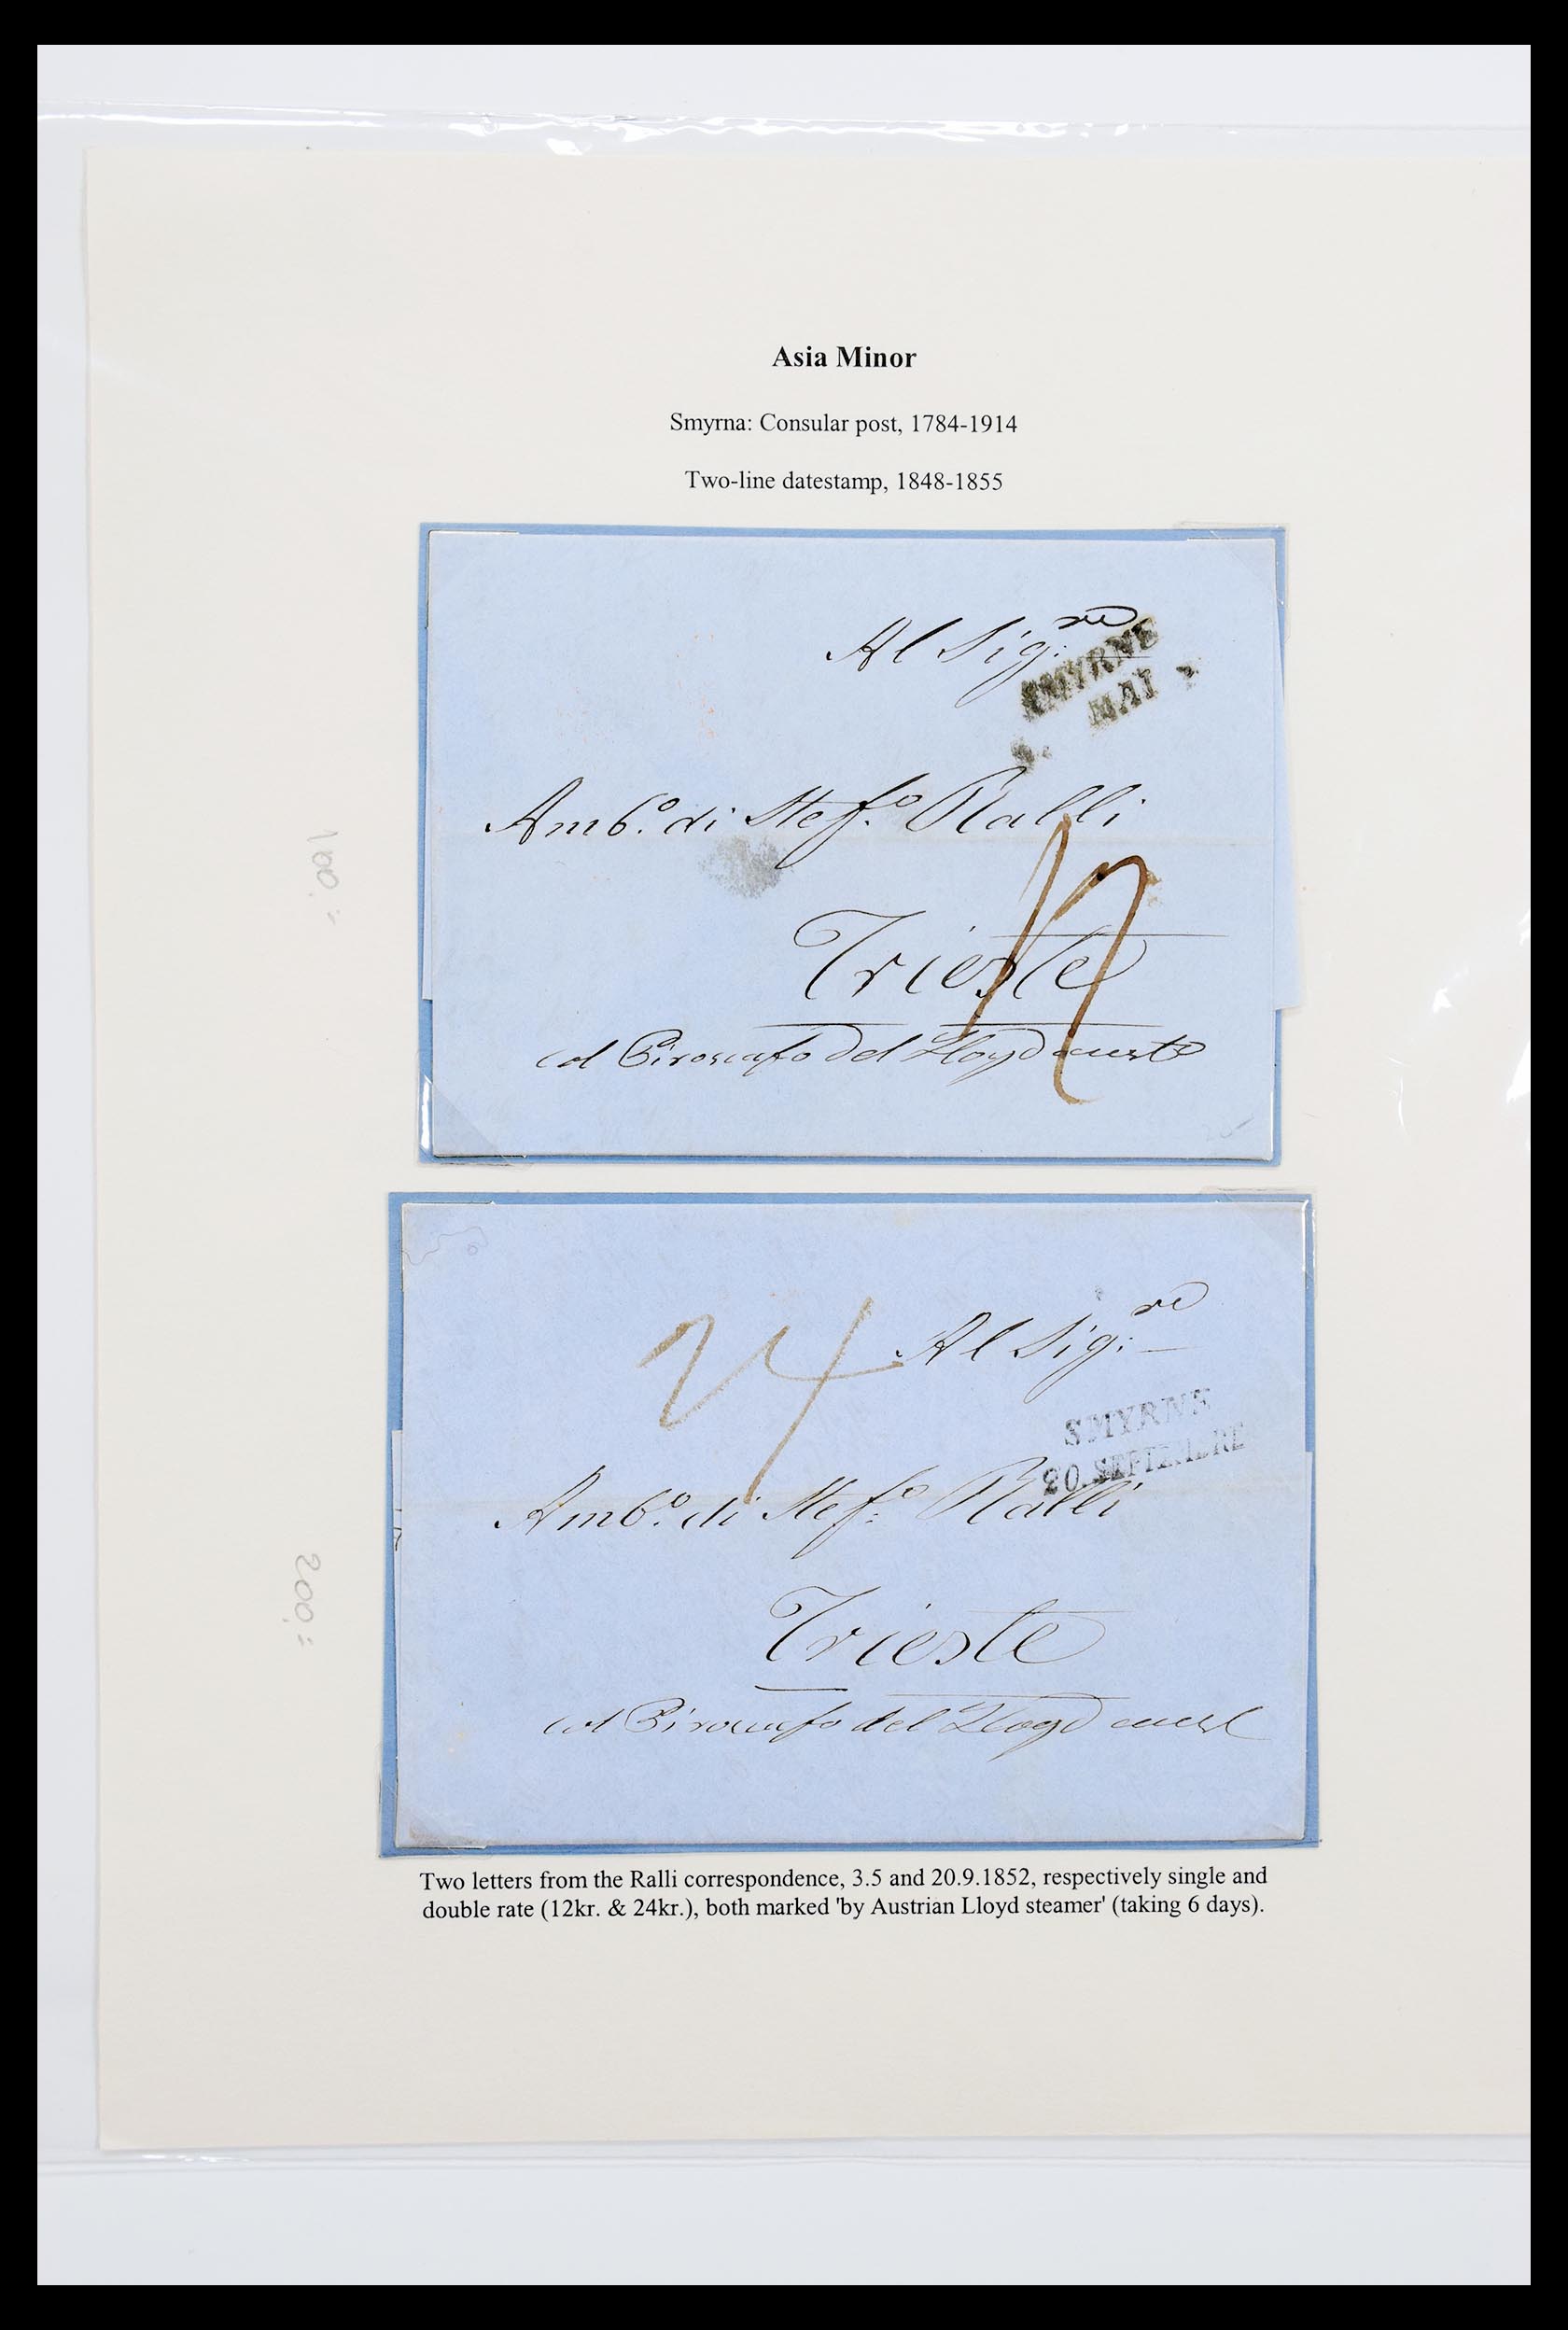 Asia Minor
Smyrna: Consular post, 1784-1914
Two-line datestamp, 1848-1855
Al Sig:re
SMYRNE
MAI
Amb.o di Stef.o Ralli
12
Trieste
col Piroscafo del Lloyd aust.o
100.=
24
Al Sig:re
SMYRNE
20. SEPTEMBRE
Amb.o di Stef.o Ralli
Trieste
col Piroscafo del Lloyd aust
200.=
Two letters from the Ralli correspondence, 3.5 and 20.9.1852, respectively single and
double rate (12kr. & 24kr.), both marked 'by Austrian Lloyd steamer' (taking 6 days).